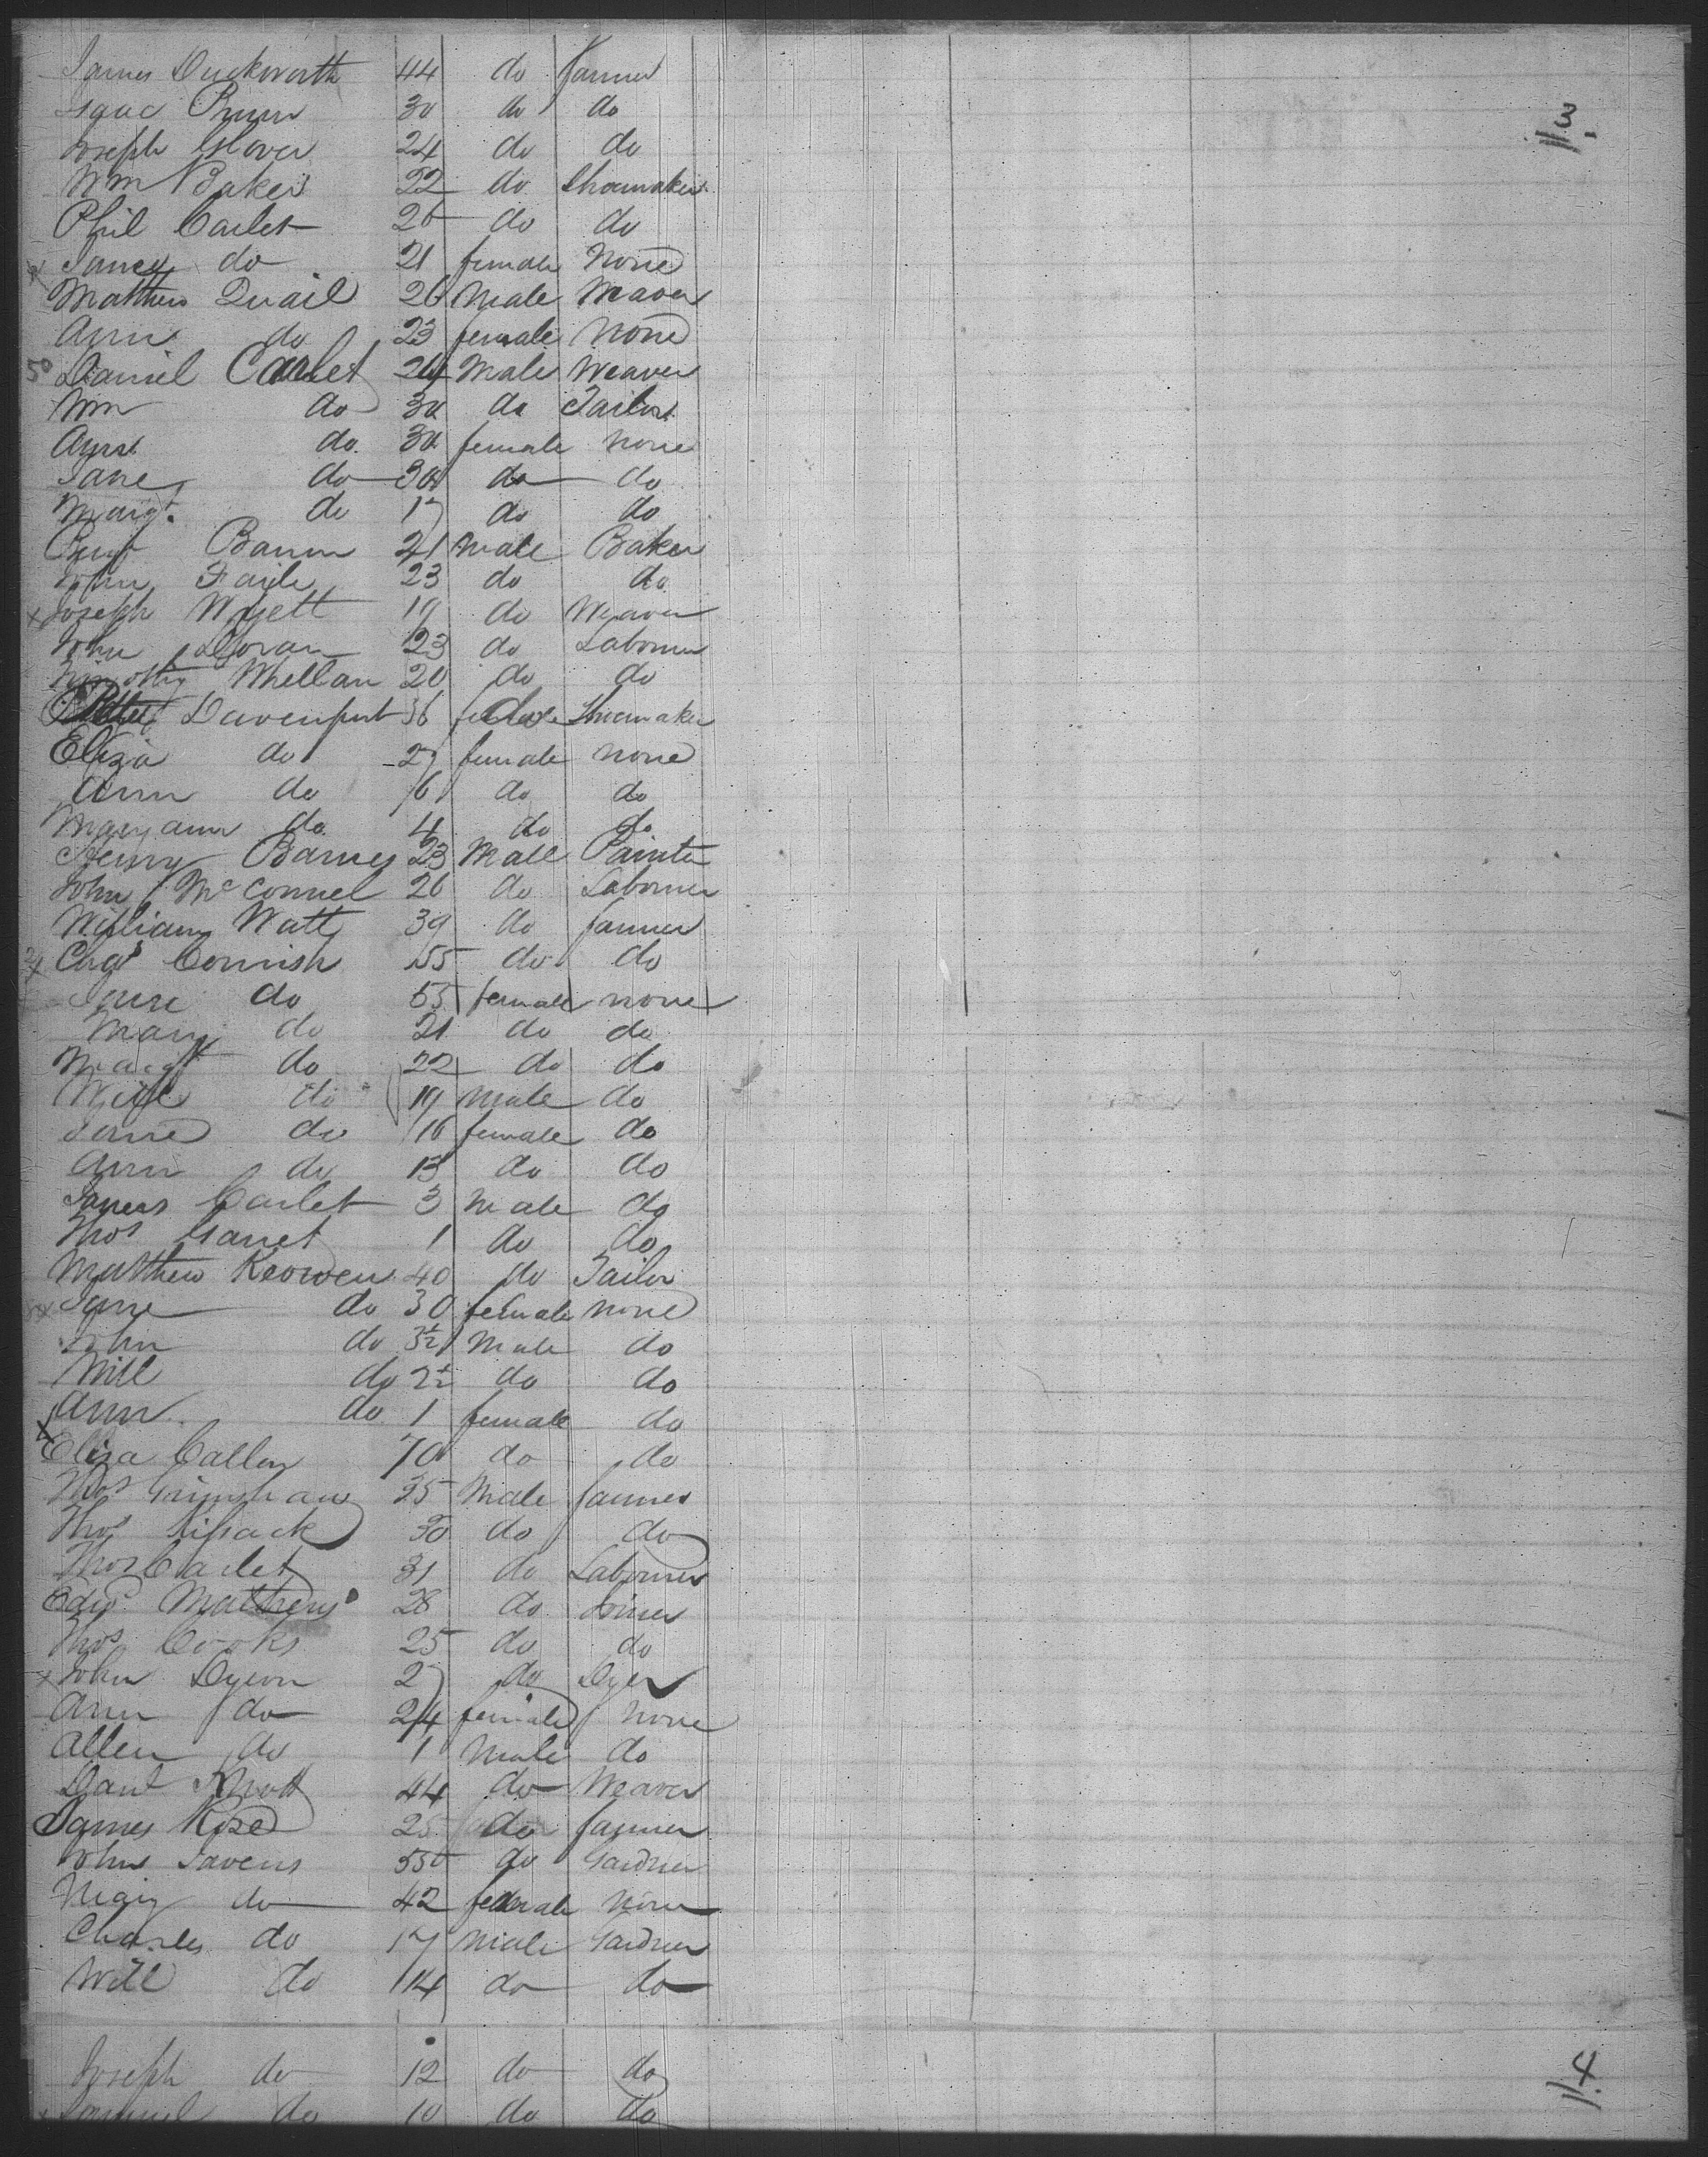 James Duckworth 44 do farmer
Isaac 30 do do
3.
Joseph Glover 24 do do
Wm Baker 22 do Shoemaker
Phil Carlet 26 do do
Janey do 21 female None
Matthew Quail 26 Male Weaver
Ann do 23 female None
50 Daniel Carlet 24 Male Weaver
Wm do 30 do Tailor
Ann do 30 female none
Jane do 30 do do
Margt. do 17 do do
Benj 21 Male Baker
John Faile 23 do do
x Joseph Wyett 19 do Weaver
John Doran 23 do Laborer
Timothy Whellan 20 do do
Davenport 36 do Shoemaker
Eliza do 27 female none
Ann do 6 do do
Maryann do 4 do do
Henry Barnes 23 Male Painter
John McConnel 26 do Laborer
William Watt 39 do farmer
Cornish 55 do do
Jane do 55 female none
Mary do 21 do do
Margt do 22 do do
Will do 19 male do
Jane do 16 female do
Ann do 13 do do
James Carlet 3 Male do
Thos Garret 1 do do
Matthew Keowen 40 do Tailor
x Jane do 30 female none
John do 3½ Male do
Will do 2½ do do
Ann do 1 female do
x Eliza Callow 70 do do
Thos Grimshaw 25 Male farmer
Thos Kissack 30 do do
Thos Carlet 31 do Laborer
Edwd Mathews 28 do Joiner
Thos Cooks 25 do do
x John Dyson 27 do Dyer
Ann do 24 female none
Allen do 1 Male do
Danl Knott 44 do Weaver
James Rose 25 do farmer
John Javens 55 do Gardner
Mary do 42 female none
Charles do 17 male Gardner
Will do 14 do do
Joseph do 12 do do
4.
Samuel do 10 do do